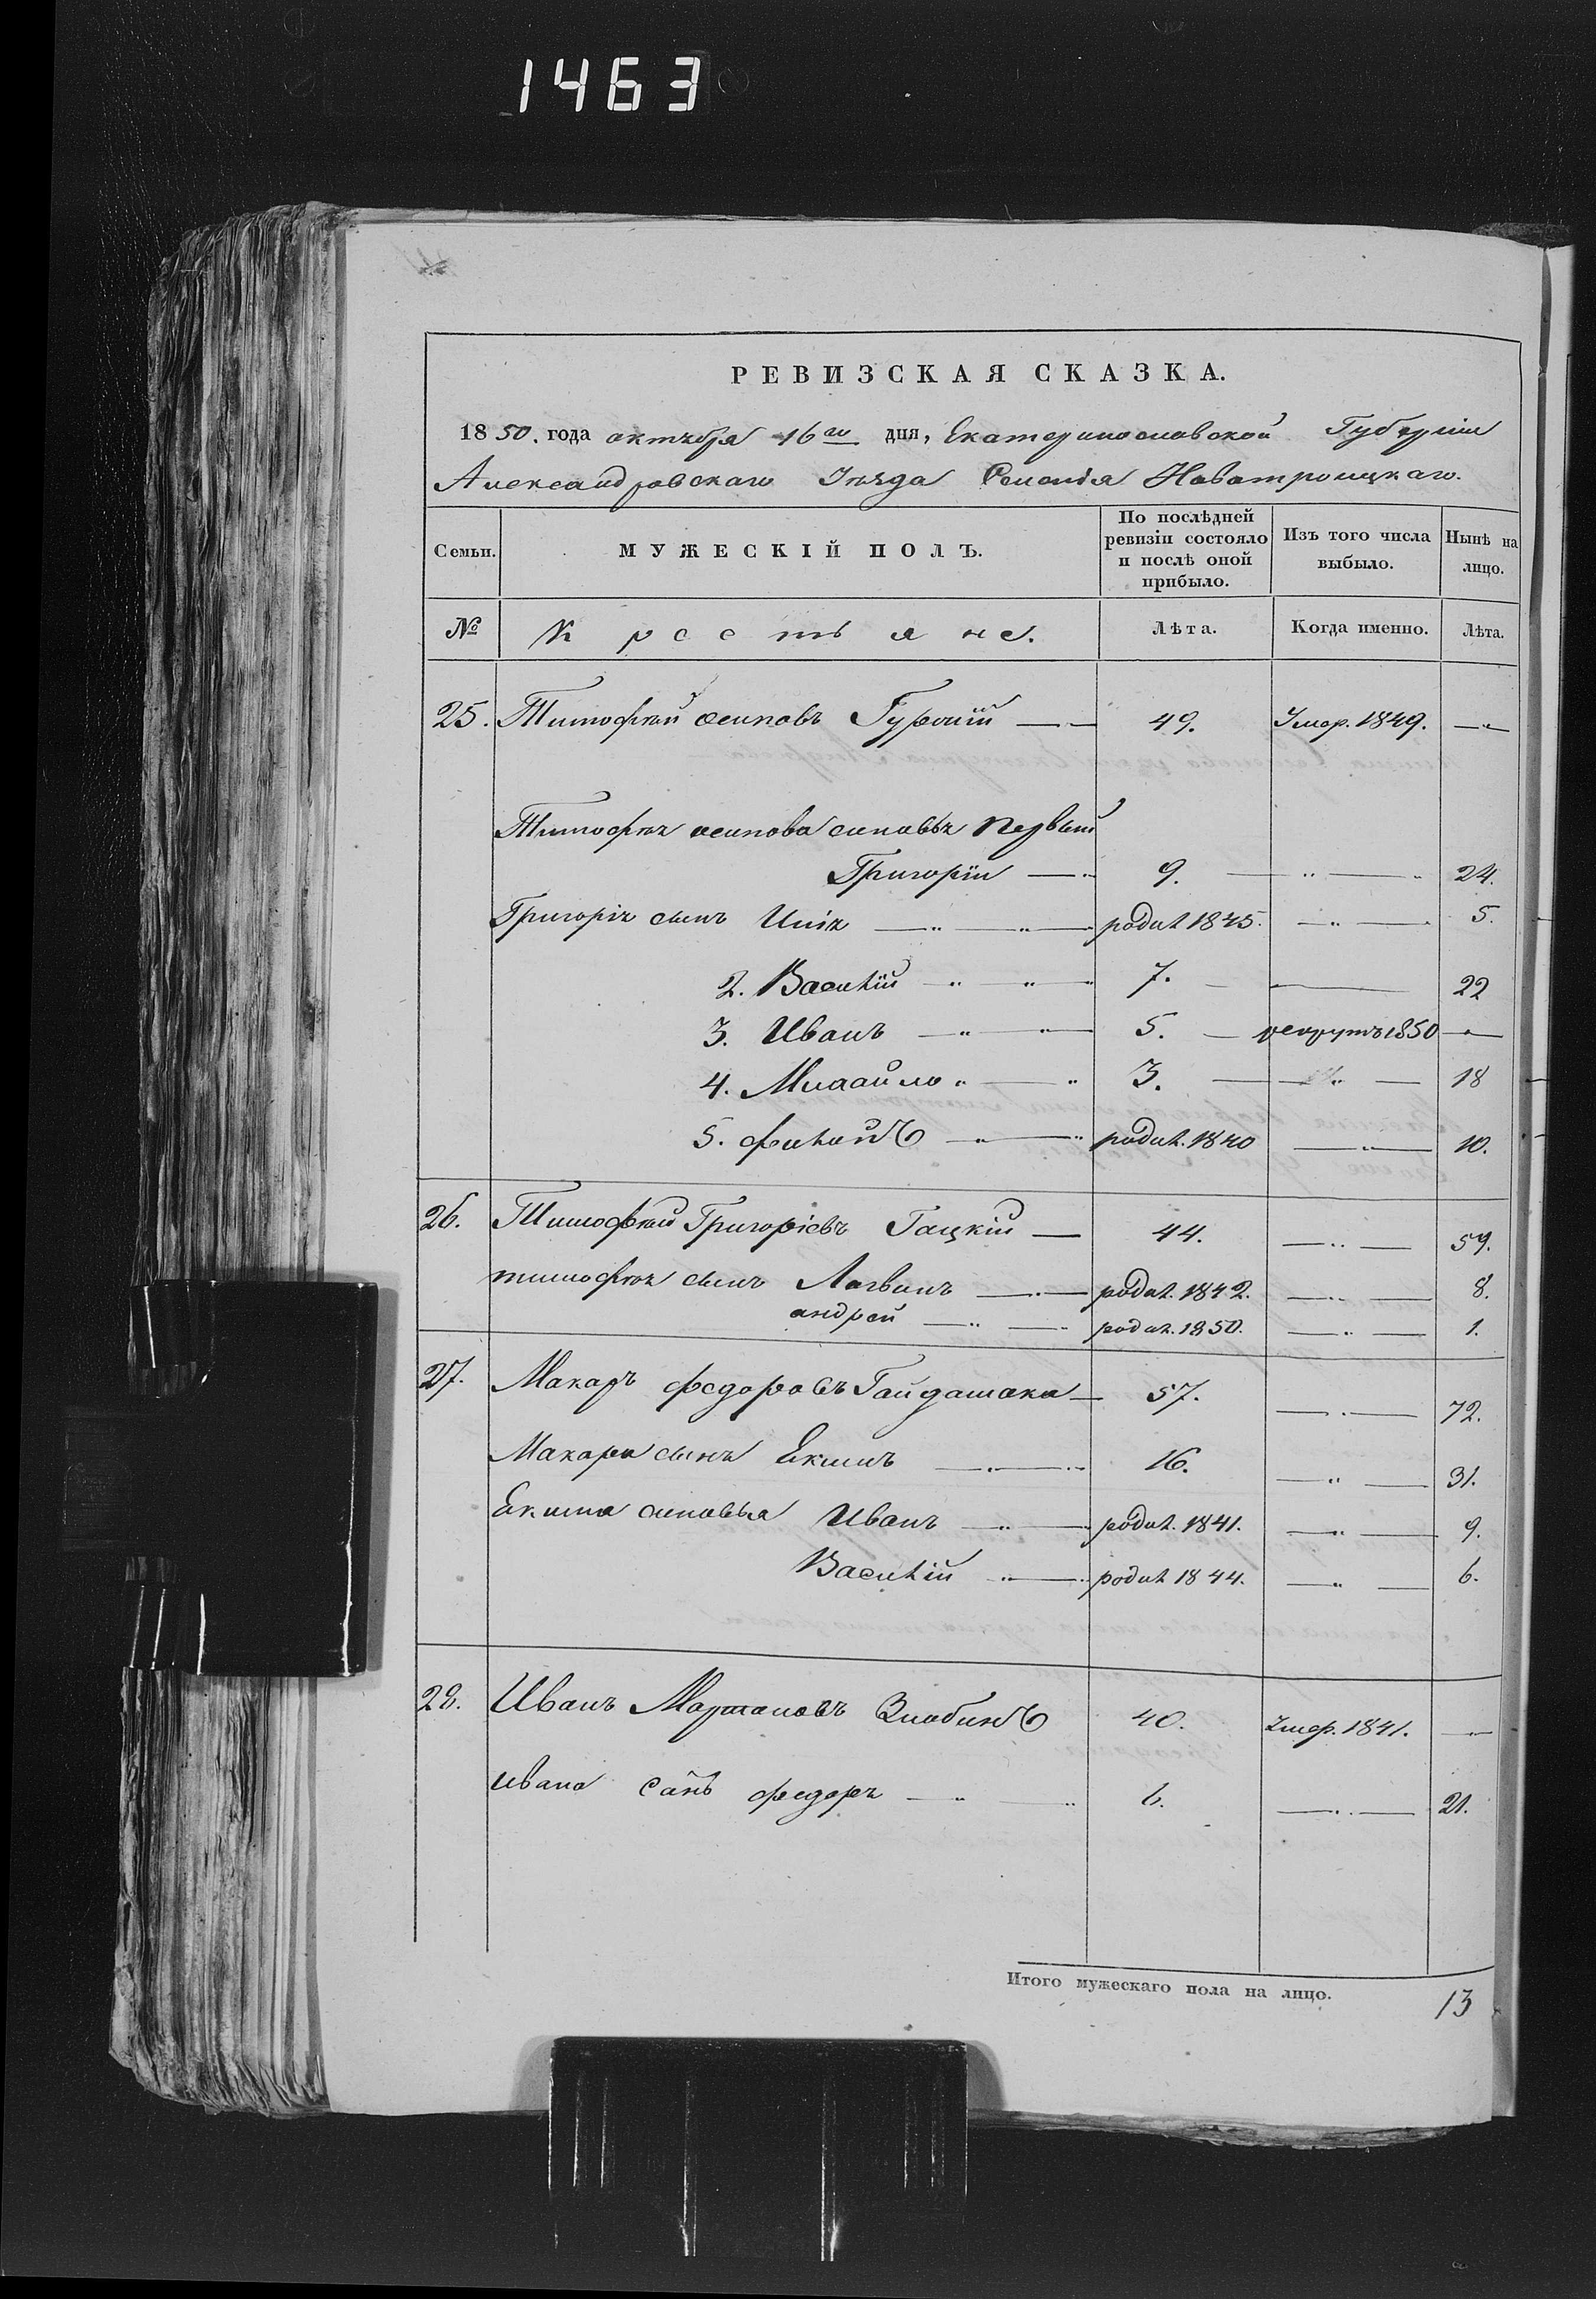 1463
РЕВИЗСКАЯ СКАЗКА.
1850. года октября 16го дня, Екатеринославской Губерніи
Александровскаго Уѣзда Селенія Новотроицкаго.
Семьи. МУЖЕСКІЙ ПОЛЪ. По послѣдней ревизіи состояло и послѣ оной прибыло. Изъ того числа выбыло. Нынѣ на лицо.
№ Крестьяне. Лѣта. Когда именно. Лѣта.
25. Тимофей осиповъ 49. Умер. 1849. —"—
Тимофея осипова сыновья первый
Григорій —" 9. — " — " 24.
Григорія сынъ Илія — " — " — родил 1845. — " — 5.
2. Василій — " — " — " 7. — — 22
3. Иванъ — " — " — 5. — рекрутъ 1850 — " —
4. Михайло " — " 3. — — " — 18
5. филипъ — " — " родил. 1840 — " — 10.
26. Тимофей Григоріевъ Гацкій — 44. — " — 59.
тимофея сынъ Логвинъ — " — родил. 1842. — " — 8.
андрей — " — " родил. 1850. — " — 1.
27. Макаръ федоровъ Гайдашака — 57. — " — 72.
Макара сынъ Екимъ — " — " 16. — " — 31.
Екима сыновья Иванъ — " — " родил. 1841. — " — 9.
Василій " — " родил 1844. — " — 6.
28. Иванъ Мартановъ Злобинъ 40. Умер. 1841. — " —
ивана сынъ федоръ — " — " 6. — " — 21.
Итого мужескаго пола на лицо. 13